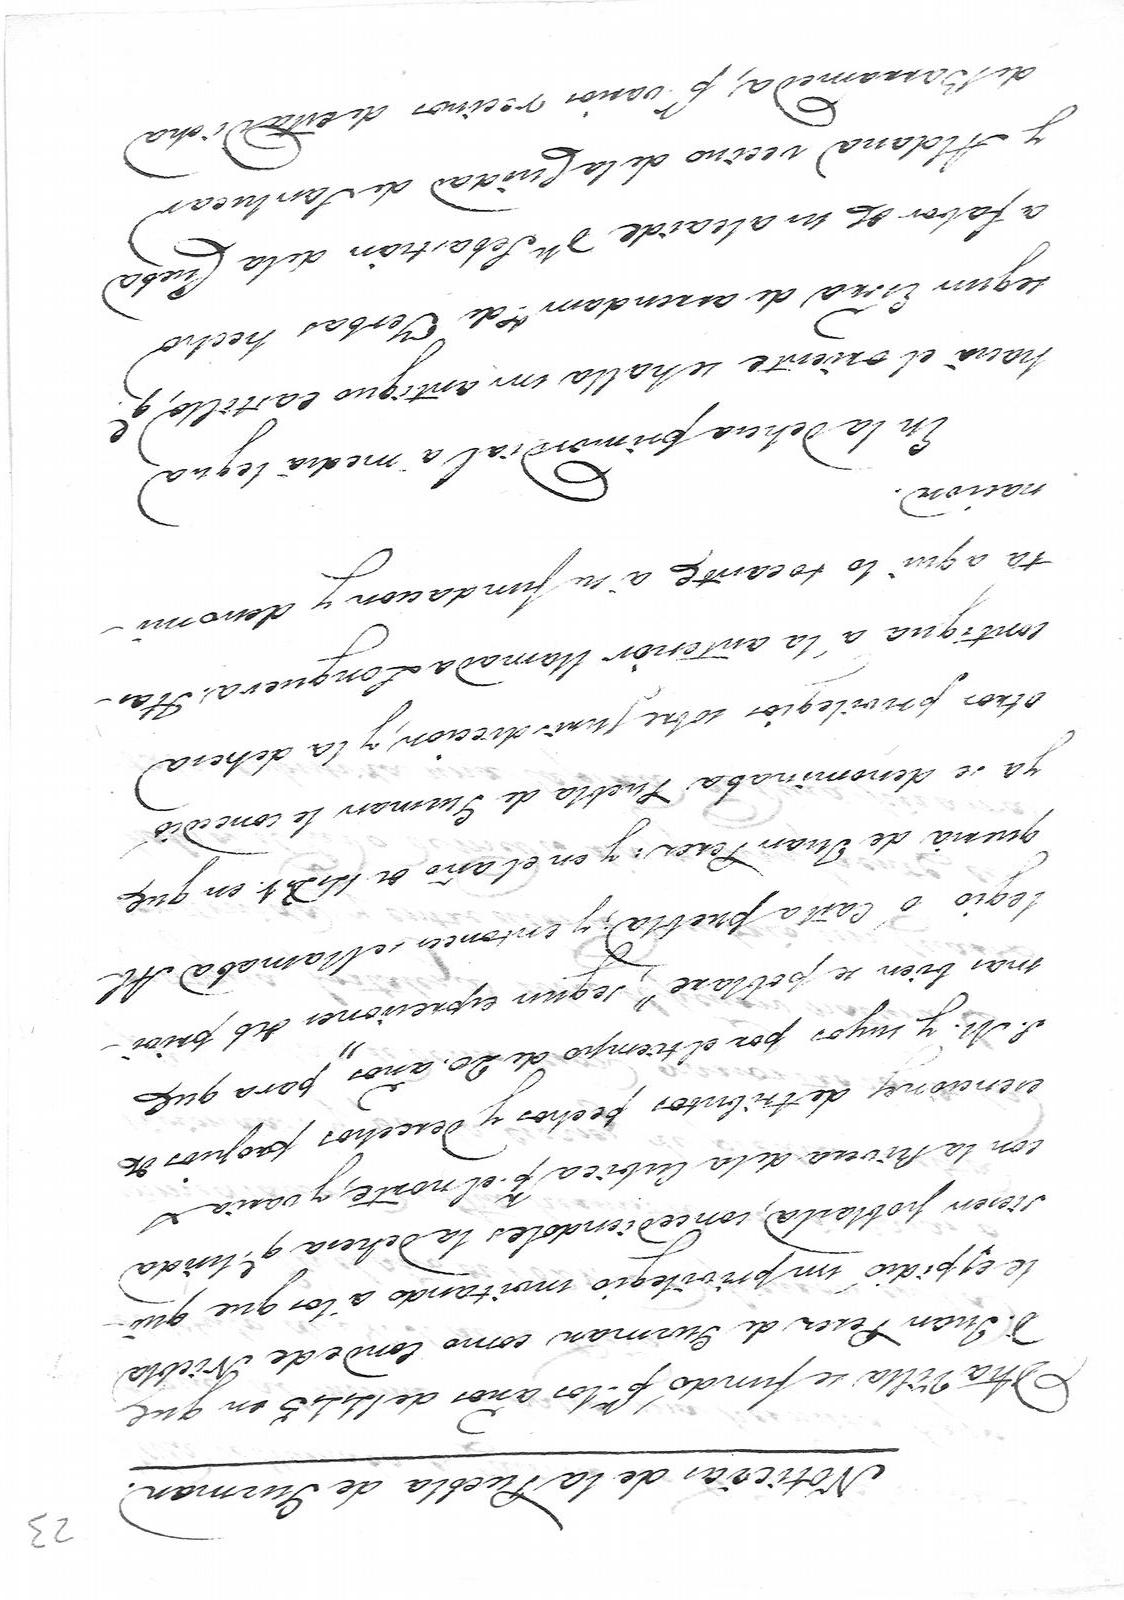 23
Noticias de la Puebla de Gusman.
Dha Villa se fundó pr los años de 1445 en que
D. Juan Peres de Gusman como Conde de Niebla
le expidió un privilegio invitando a los que qui-
siesen poblarla, concediendoles la dehesa qe linda
con la Rivera de la Cubica pr el norte, y varias
esenciones de tributos pechos y derechos propios de
S. M. y suyos por el tiempo de 20. años „ para que
mas bien se poblase", segun expresiones del privi-
legio ó Carta puebla; y entonces se llamaba Al-
queria de Juan Peres: y en el año de en que
ya se denominaba Puebla de Gusman le concedió
otros privilegios sobre jurisdiccion, y la dehesa
contigua á la anterior llamada Longuera. Has-
ta aqui lo tocante a su fundacion y denomi-
nacion.
En la dehesa primordial a media legua
hacia el oriente se halla un antiguo castillo, qe
segun Esra de arrendamto de Yerbas hecho
a fabor de un alcaide Dn Sebastian de la Cueba
y Aldana vecino de la Ciudad de Sanlucar
de Barrameda, pr varios vecinos de esta Dicha